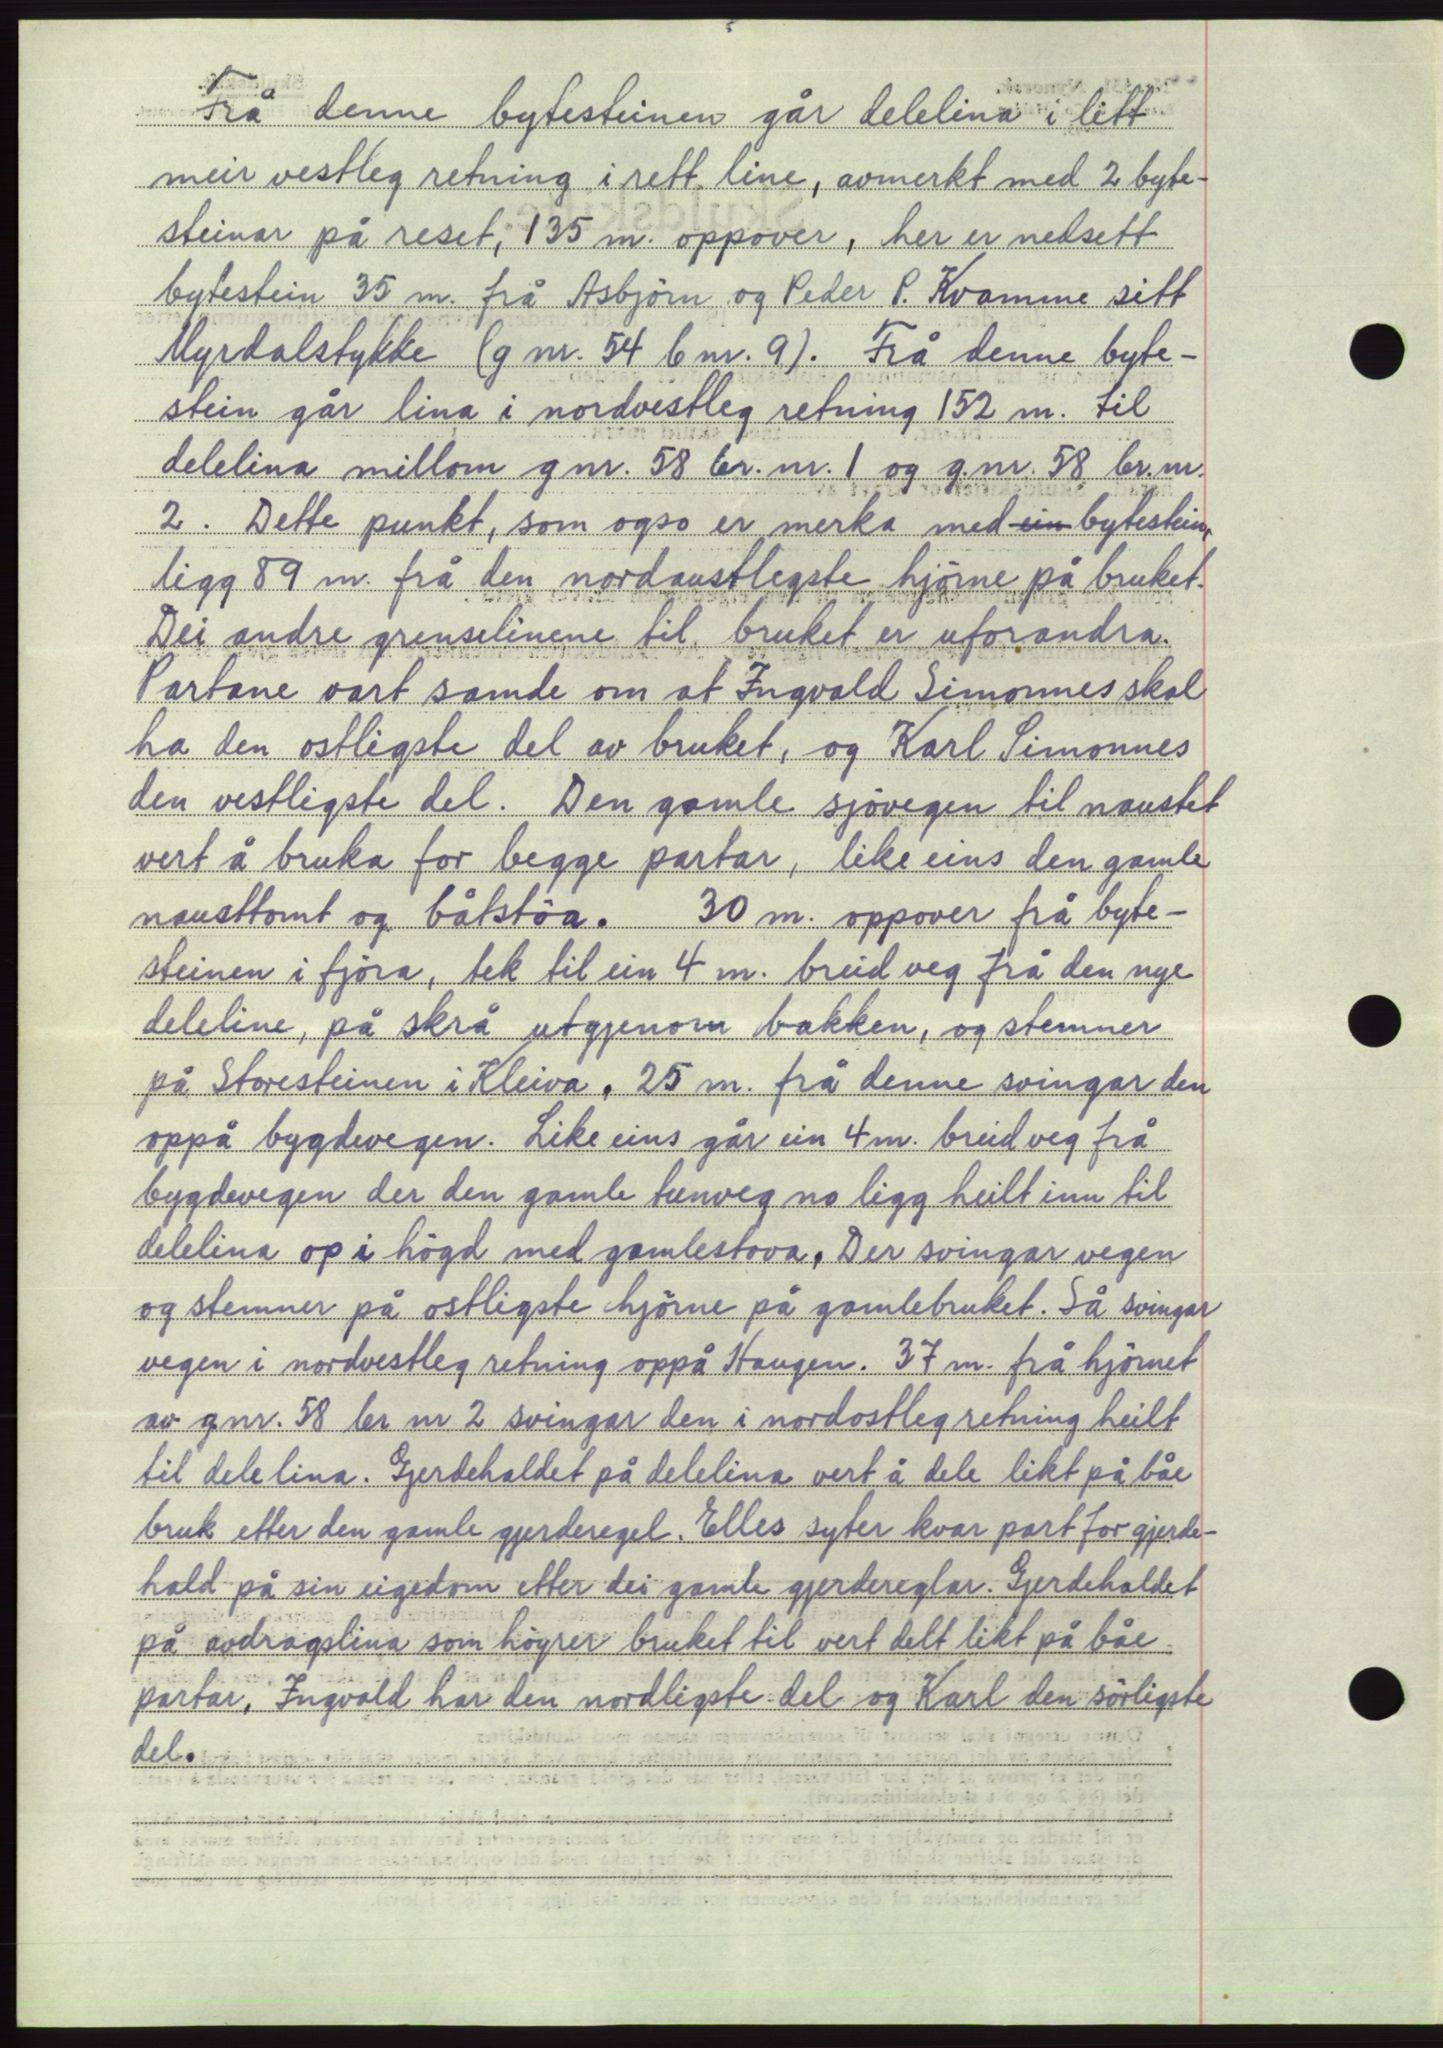 Frå denne bytesteinen går delelina i litt
meir vestleg retning i rett line, avmerkt med 2 byte-
steinar på reset, 135 m. oppover, her er nedsett
bytestein 35 m. frå Asbjörn og Peder P. Kvamme sitt
Myrdalstykke (g nr. 54 b nr. 9). Frå denne byte-
stein går lina i nordvestleg retning 152 m. til
delelina millom g nr. 58 br. nr. 1 og g. nr. 58 br. nr.
2. Dette punkt, som ogso er merka med ein bytestein,
ligg 89 m. frå den nordaustlegste hjörne på bruket.
Dei andre grenselinene til bruket er uforandra.
Partane vart samde om at Ingvald Simonnes skal
ha den ostligste del av bruket, og Karl Simonnes
den vestligste del. Den gamle sjövegen til naustet
vert å bruka for begge partar, like eins den gamle
nausttomt og båtstöa. 30 m. oppover frå byte-
steinen i fjöra, tek til ein 4 m. breid veg frå den nye
deleline, på skrå utgjenom bakken, og stemner
på Storesteinen i Kleiva. 25 m. frå denne svingar den
oppå bygdevegen. Like eins går ein 4 m. breid veg frå
bygdevegen der den gamle tunveg no ligg heilt inn til
delelina op i högd med gamlestova. Der svingar vegen
og stemner på ostligste hjörne på gamlebruket. Så svingar
vegen i nordvestleg retning oppå Haugen. 37 m. frå hjörnet
av g nr. 58 br nr 2 svingar den i nordostleg retning heilt
til delelina. Gjerdehaldet på delelina vert å dele likt på båe
bruk etter den gamle gjerderegel. Elles syter kvar part for gjerde-
hald på sin eigedom etter dei gamle gjerdereglar. Gjerdehaldet
på avdragslina som höyrer bruket til vert delt likt på båe
partar, Ingvald har den nordligste del og Karl den sörligste
del.